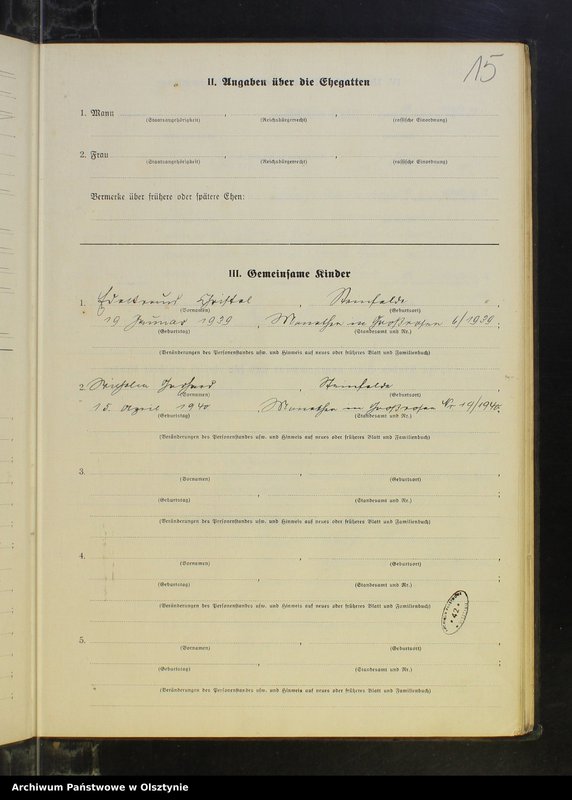 15
II. Angaben über die Ehegatten
1. Mann , ,
(Staatsangehörigkeit) (Reichsbürgerrecht) (rassische Einordnung)
2. Frau , ,
(Staatsangehörigkeit) (Reichsbürgerrecht) (rassische Einordnung)
Vermerke über frühere oder spätere Ehen:
III. Gemeinsame Kinder
1. Edeltraud Christel , Steinfelde ,
(Vornamen) (Geburtsort)
19 Januar 1939 , in Großrosen 6/1939 ;
(Geburtstag) (Standesamt und Nr.)
(Veränderungen des Personenstandes usw. und Hinweis auf neues oder früheres Blatt und Familienbuch)
2. Wilhelm Gerhard , Steinfelde ,
(Vornamen) (Geburtsort)
15. April 1940 , in Großrosen Nr 19/1940;
(Geburtstag) (Standesamt und Nr.)
(Veränderungen des Personenstandes usw. und Hinweis auf neues oder früheres Blatt und Familienbuch)
3. , ,
(Vornamen) (Geburtsort)
, ;
(Geburtstag) (Standesamt und Nr.)
(Veränderungen des Personenstandes usw. und Hinweis auf neues oder früheres Blatt und Familienbuch)
4. , ,
(Vornamen) (Geburtsort)
, ;
(Geburtstag) (Standesamt und Nr.)
(Veränderungen des Personenstandes usw. und Hinweis auf neues oder früheres Blatt und Familienbuch)
42
5. , ,
(Vornamen) (Geburtsort)
, ;
(Geburtstag) (Standesamt und Nr.)
(Veränderungen des Personenstandes usw. und Hinweis auf neues oder früheres Blatt und Familienbuch)
Archiwum Państwowe w Olsztynie